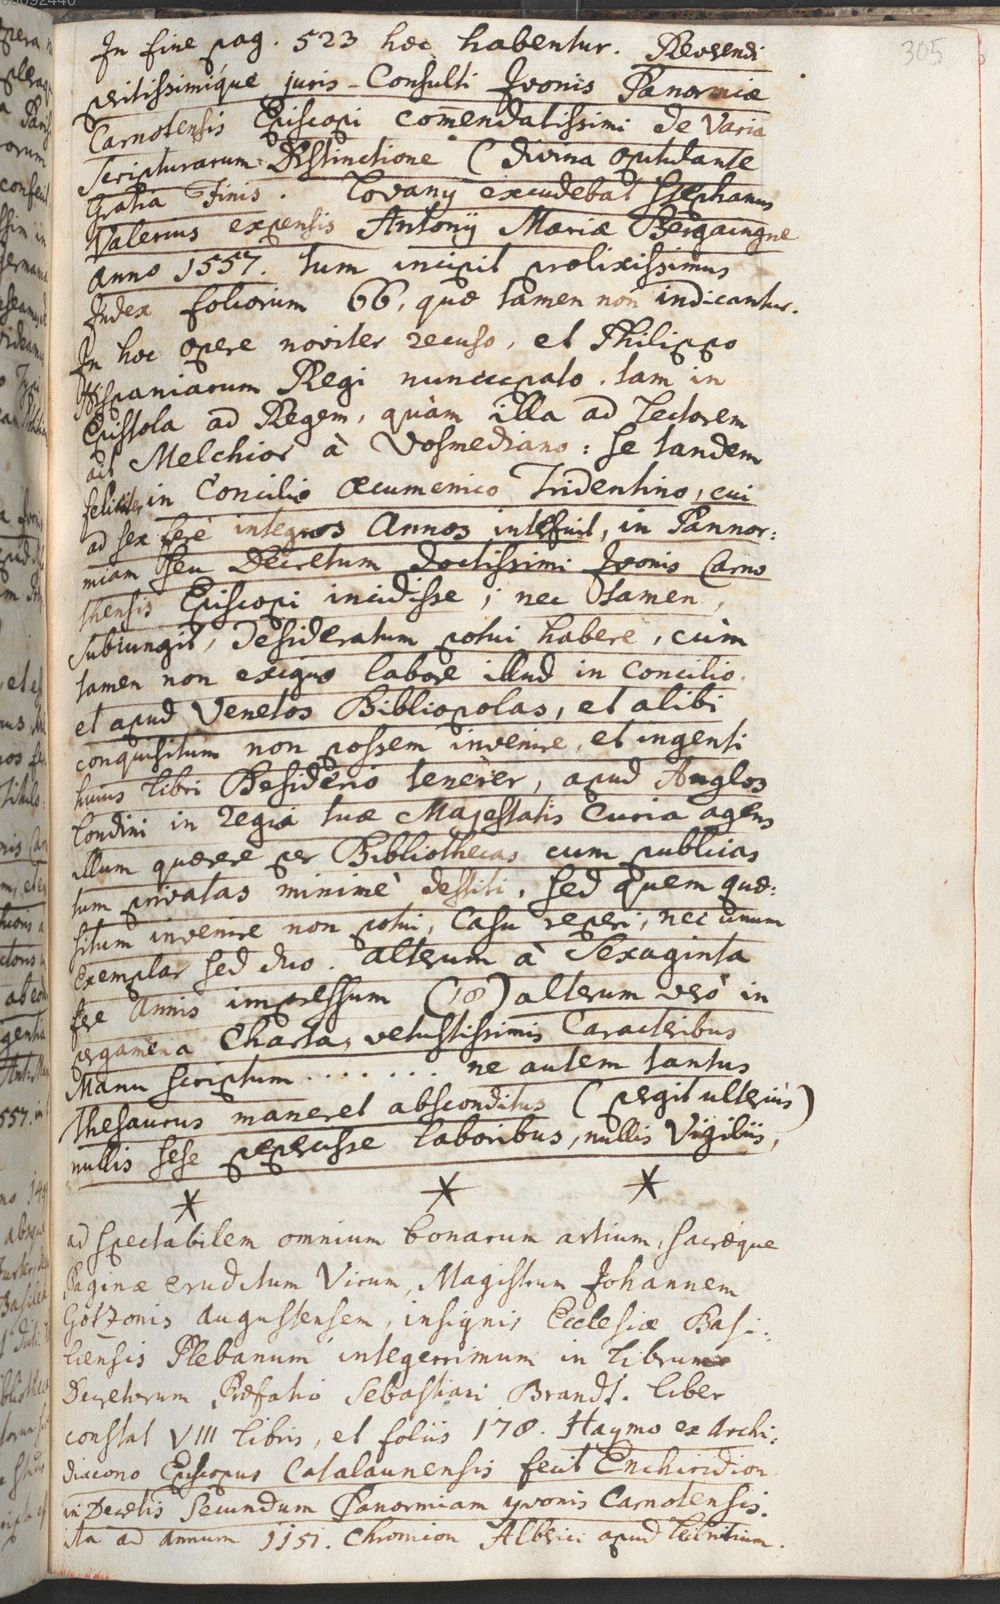 305
In fine pag. 523 hoc habentur. Reverendi
peritissimique juris-Consulti Ivonis Panormiæ
Carnotensis Episcopi comendatissimi de Varia
Scripturarum Distinctione (divina opitulante
Gratia Finis. Lovanÿ excudebat Stephanus
Valerius expensis Antonÿ Mariæ Bergaingne
anno 1557. tum incipit prolixissimus
Index foliorum 66, quæ tamen non indicantur.
In hoc opere noviter recuso, et Philippo
Hispaniarum Regi nuncupato. tam in
Epistola ad Regem, quàm illa ad Lectorem
ait Melchior à Vosmediano: se tandem
feliciter in Concilio Œcumenico Tridentino, cui
ad sex ferè integros Annos intefuit, in Pannor:
miam seu Decretum doctissimi Ivonis Carno
thensis Episcopi incidisse; nec tamen,
subiungit, desideratum potui habere, cùm
tamen non exiguo labore illud in Concilio
et apud Venetos Bibliopolas, et alibi
conquisitum non possem invenire, et ingenti
huius libri Desiderio tenerer, apud Anglos
Londini in regia tuæ Majestatis Curia agens
illum quærere per Bibliothecas cum publicas
tum privatas minimè destiti, sed quem quæ:
situm invenire non potui, Casu reperi, nec unum
Exemplar sed duo. alterum à Sexaginta
fere Annis impressum (18) alterum verò in
pergamena Charta, vetustissimis Caracteribus
Manu scriptum ....... ne autem tantus
thesaurus maneret absconditus (pergit ulteriùs)
nullis sese pepercisse laboribus, nullis Vigiliis,
* * *
ad spectabilem omnium bonarum artium, sacræque
Paginæ eruditum Virum, Magistrum Johannem
Gotzonis Augustensem, insignis Ecclesiæ Basi:
liensis Plebanum integerrimum in librum
Decretorum Præfatio Sebastiani Brandt. liber
constat VIII libris, et foliis 178. Haymo ex Archi:
diacono Episcopus Catalaunensis fecit Enchiridion
in Decretis secundum Panormiam yvonis Carnotensis.
ita ad annum 1151. chronicon Alberici apud Leibnitium.